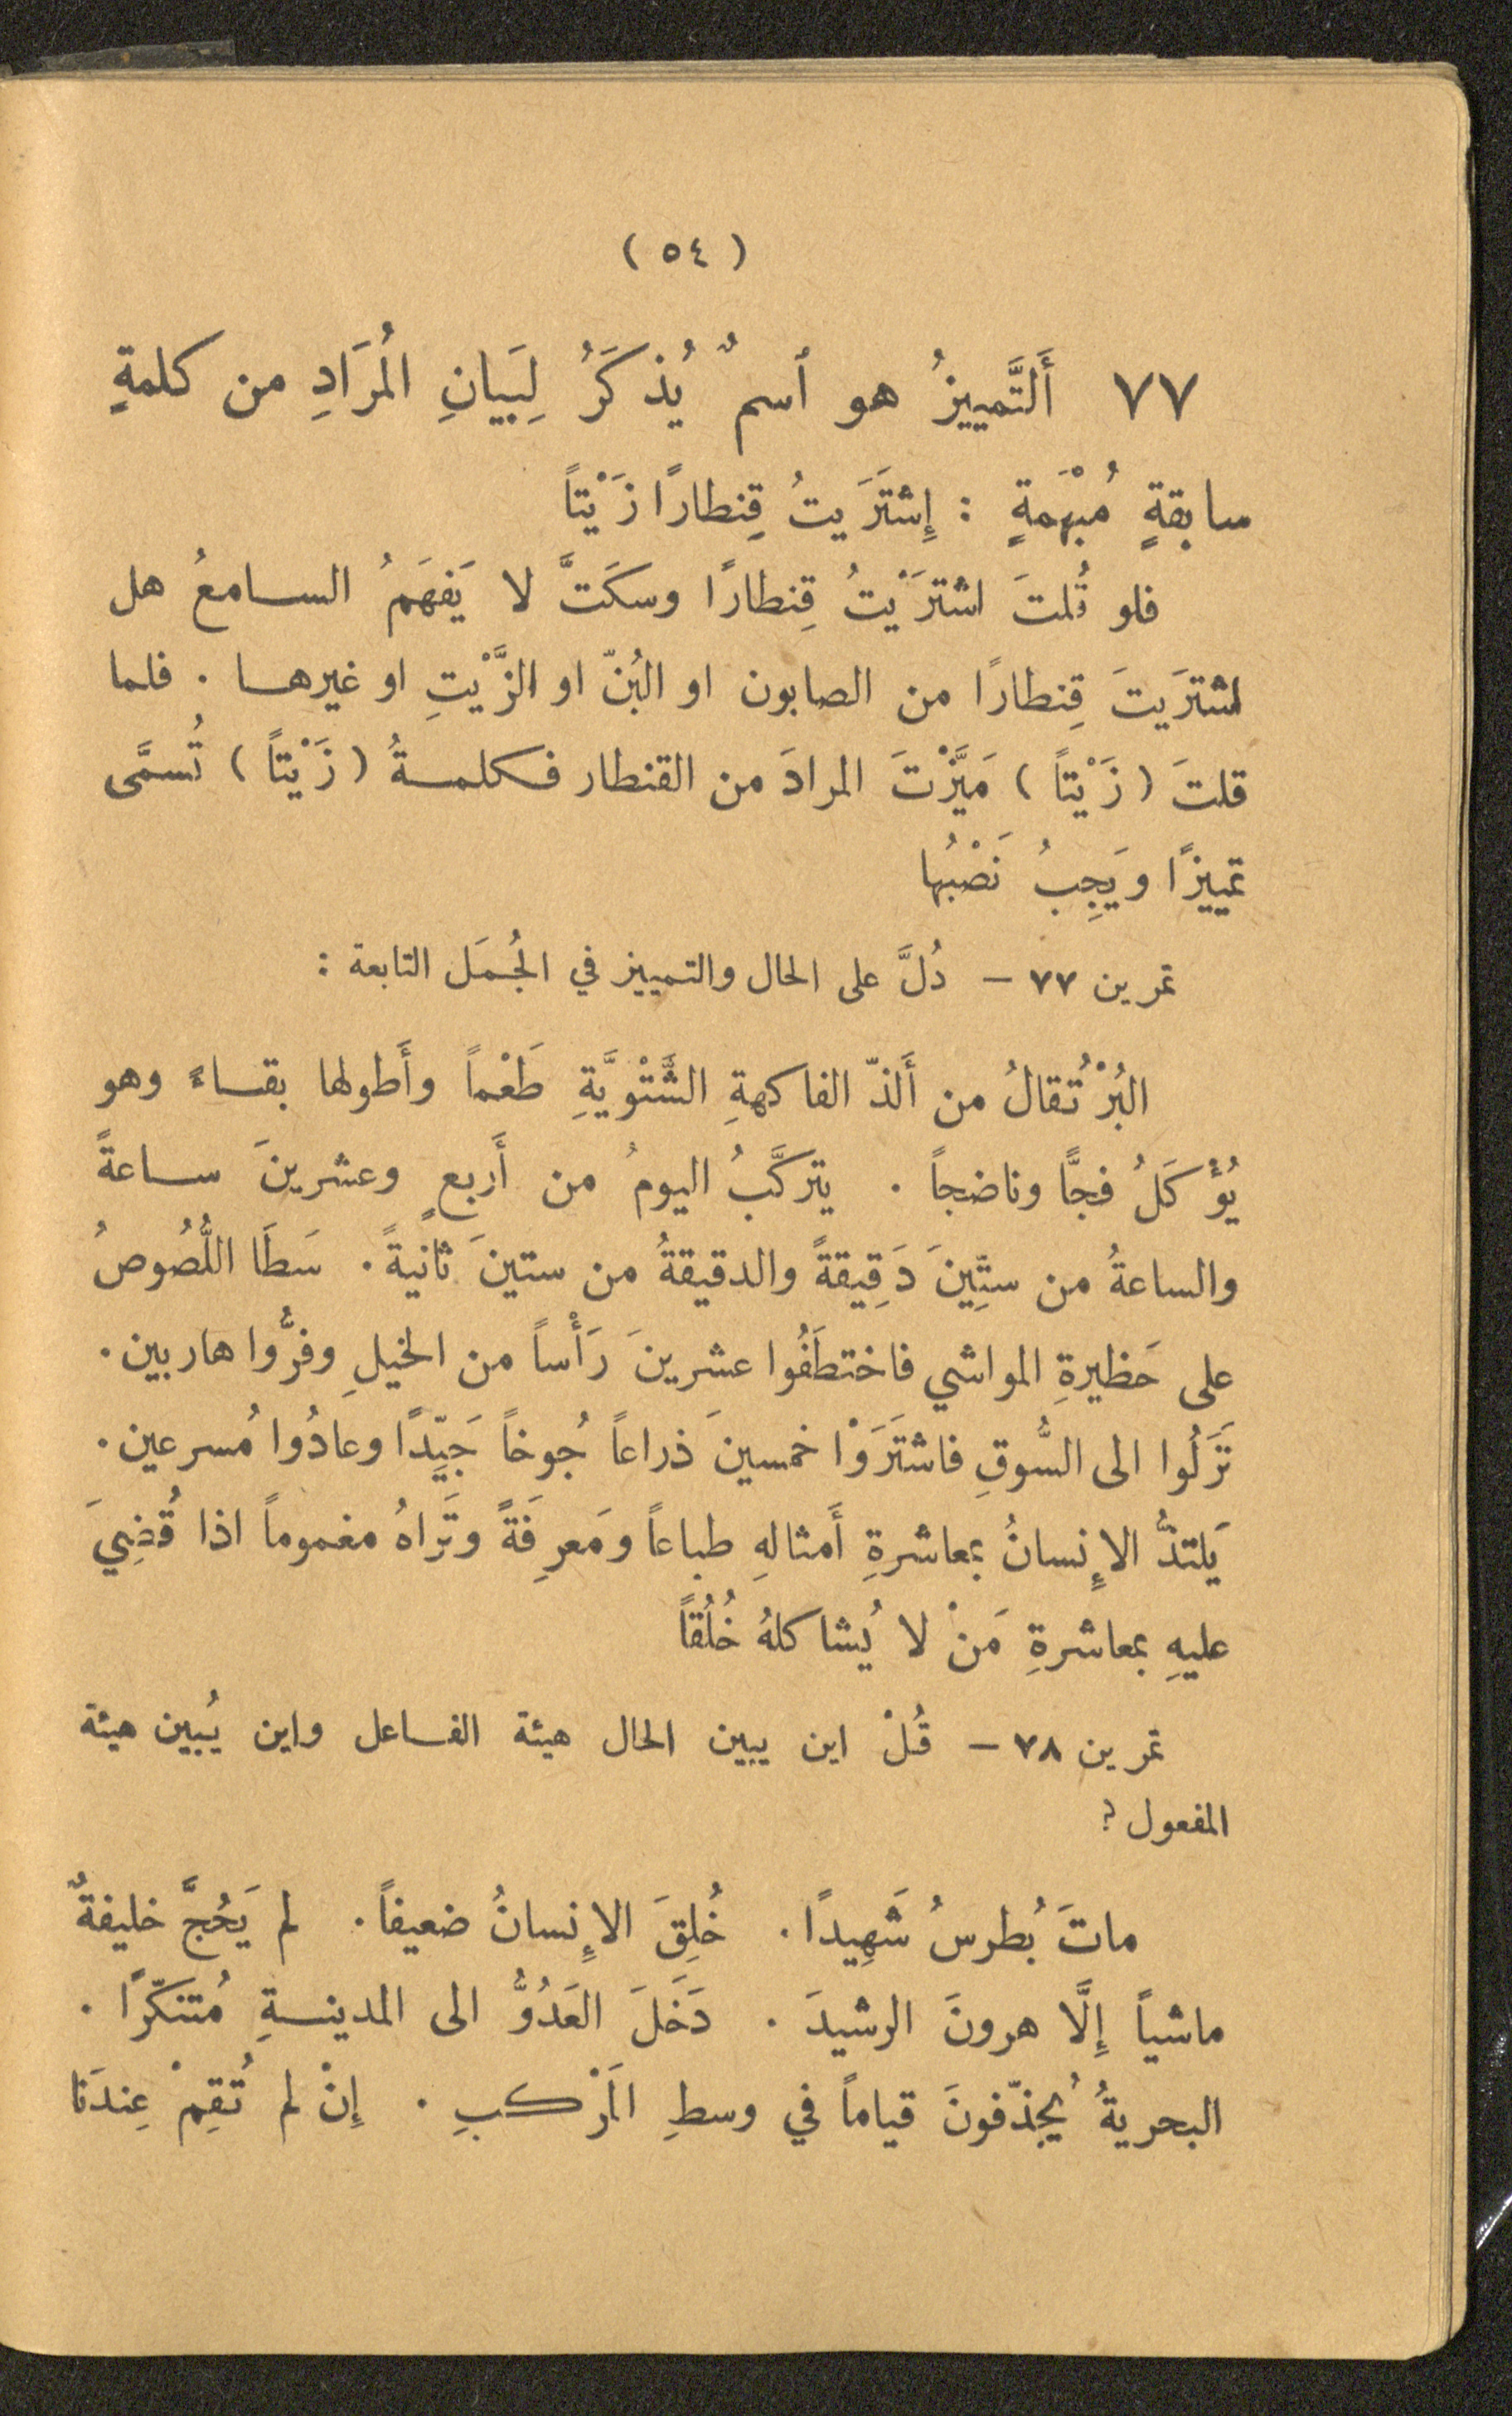 ( ٥٤ )
٧٧ أَلتَّمييزُ هو ٱسمٌ يُذكَرُ لِبَيانِ المُرَادِ من كلمةٍ
سابقةٍ مُبْهَمَةٍ : إِشتَرَيتُ قِنطارًا زَيْتاً
فلو قُلتَ اشترَيْتُ قِنطارًا وسكَتَّ لا يَفهَمُ السامعُ هل
اشترَيتَ قِنطارًا من الصابون او البُنّ او الزَّيْتِ او غيرها . فلما
قلتَ ( زَيْتاً ) مَيَّزْتَ المرادَ من القنطار فكلمةُ ( زَيْتاً ) تُسمَّى
تمييزًا ويَجِبُ نَصْبُها
تمرين ٧٧ — دُلَّ على الحال والتمييز في الجُمَل التابعة :
البُرْتُقالُ من أَلذّ الفاكهةِ الشَّتْوِيَّةِ طَعْماً وأَطولها بقاءً وهو
يُؤْكَلُ فجًّا وناضجاً . يتركَّبُ اليومُ من أَربعٍ وعشرينَ ساعةً
والساعةُ من ستِّينَ دَقِيقةً والدقيقةُ من ستينَ ثانيةً . سَطَا اللُّصُوصُ
على حَظيرةِ المواشي فاختطَفُوا عشرينَ رَأْساً من الخيلِ وفرُّوا هاربين .
نَزَلُوا الى السُّوقِ فاشتَرَوْا خمسينَ ذراعاً جُوخاً جَيّدًا وعادُوا مُسرعين .
يَلتذُّ الإِنسانُ بمعاشرةِ أَمثالهِ طباعاً ومَعرِفَةً وتَراهُ مغموماً اذا قُضِيَ
عليهِ بمعاشرةِ مَنْ لا يُشاكلهُ خُلُقاً
تمرين ٧٨ — قُلْ اين يبين الحال هيئة الفاعل واين يُبين هيئة
المفعول ؟
ماتَ بُطرسُ شَهِيدًا . خُلِقَ الإِنسانُ ضعيفاً . لم يَحُجَّ خليفةٌ
ماشياً إِلَّا هرونَ الرشيدَ . دَخَلَ العَدُوُّ الى المدينةِ مُتنَكّرًا .
البحريةُ يُجذّفونَ قياماً في وسطِ المَرْكبِ . إِنْ لم تُقِمْ عِندَنا